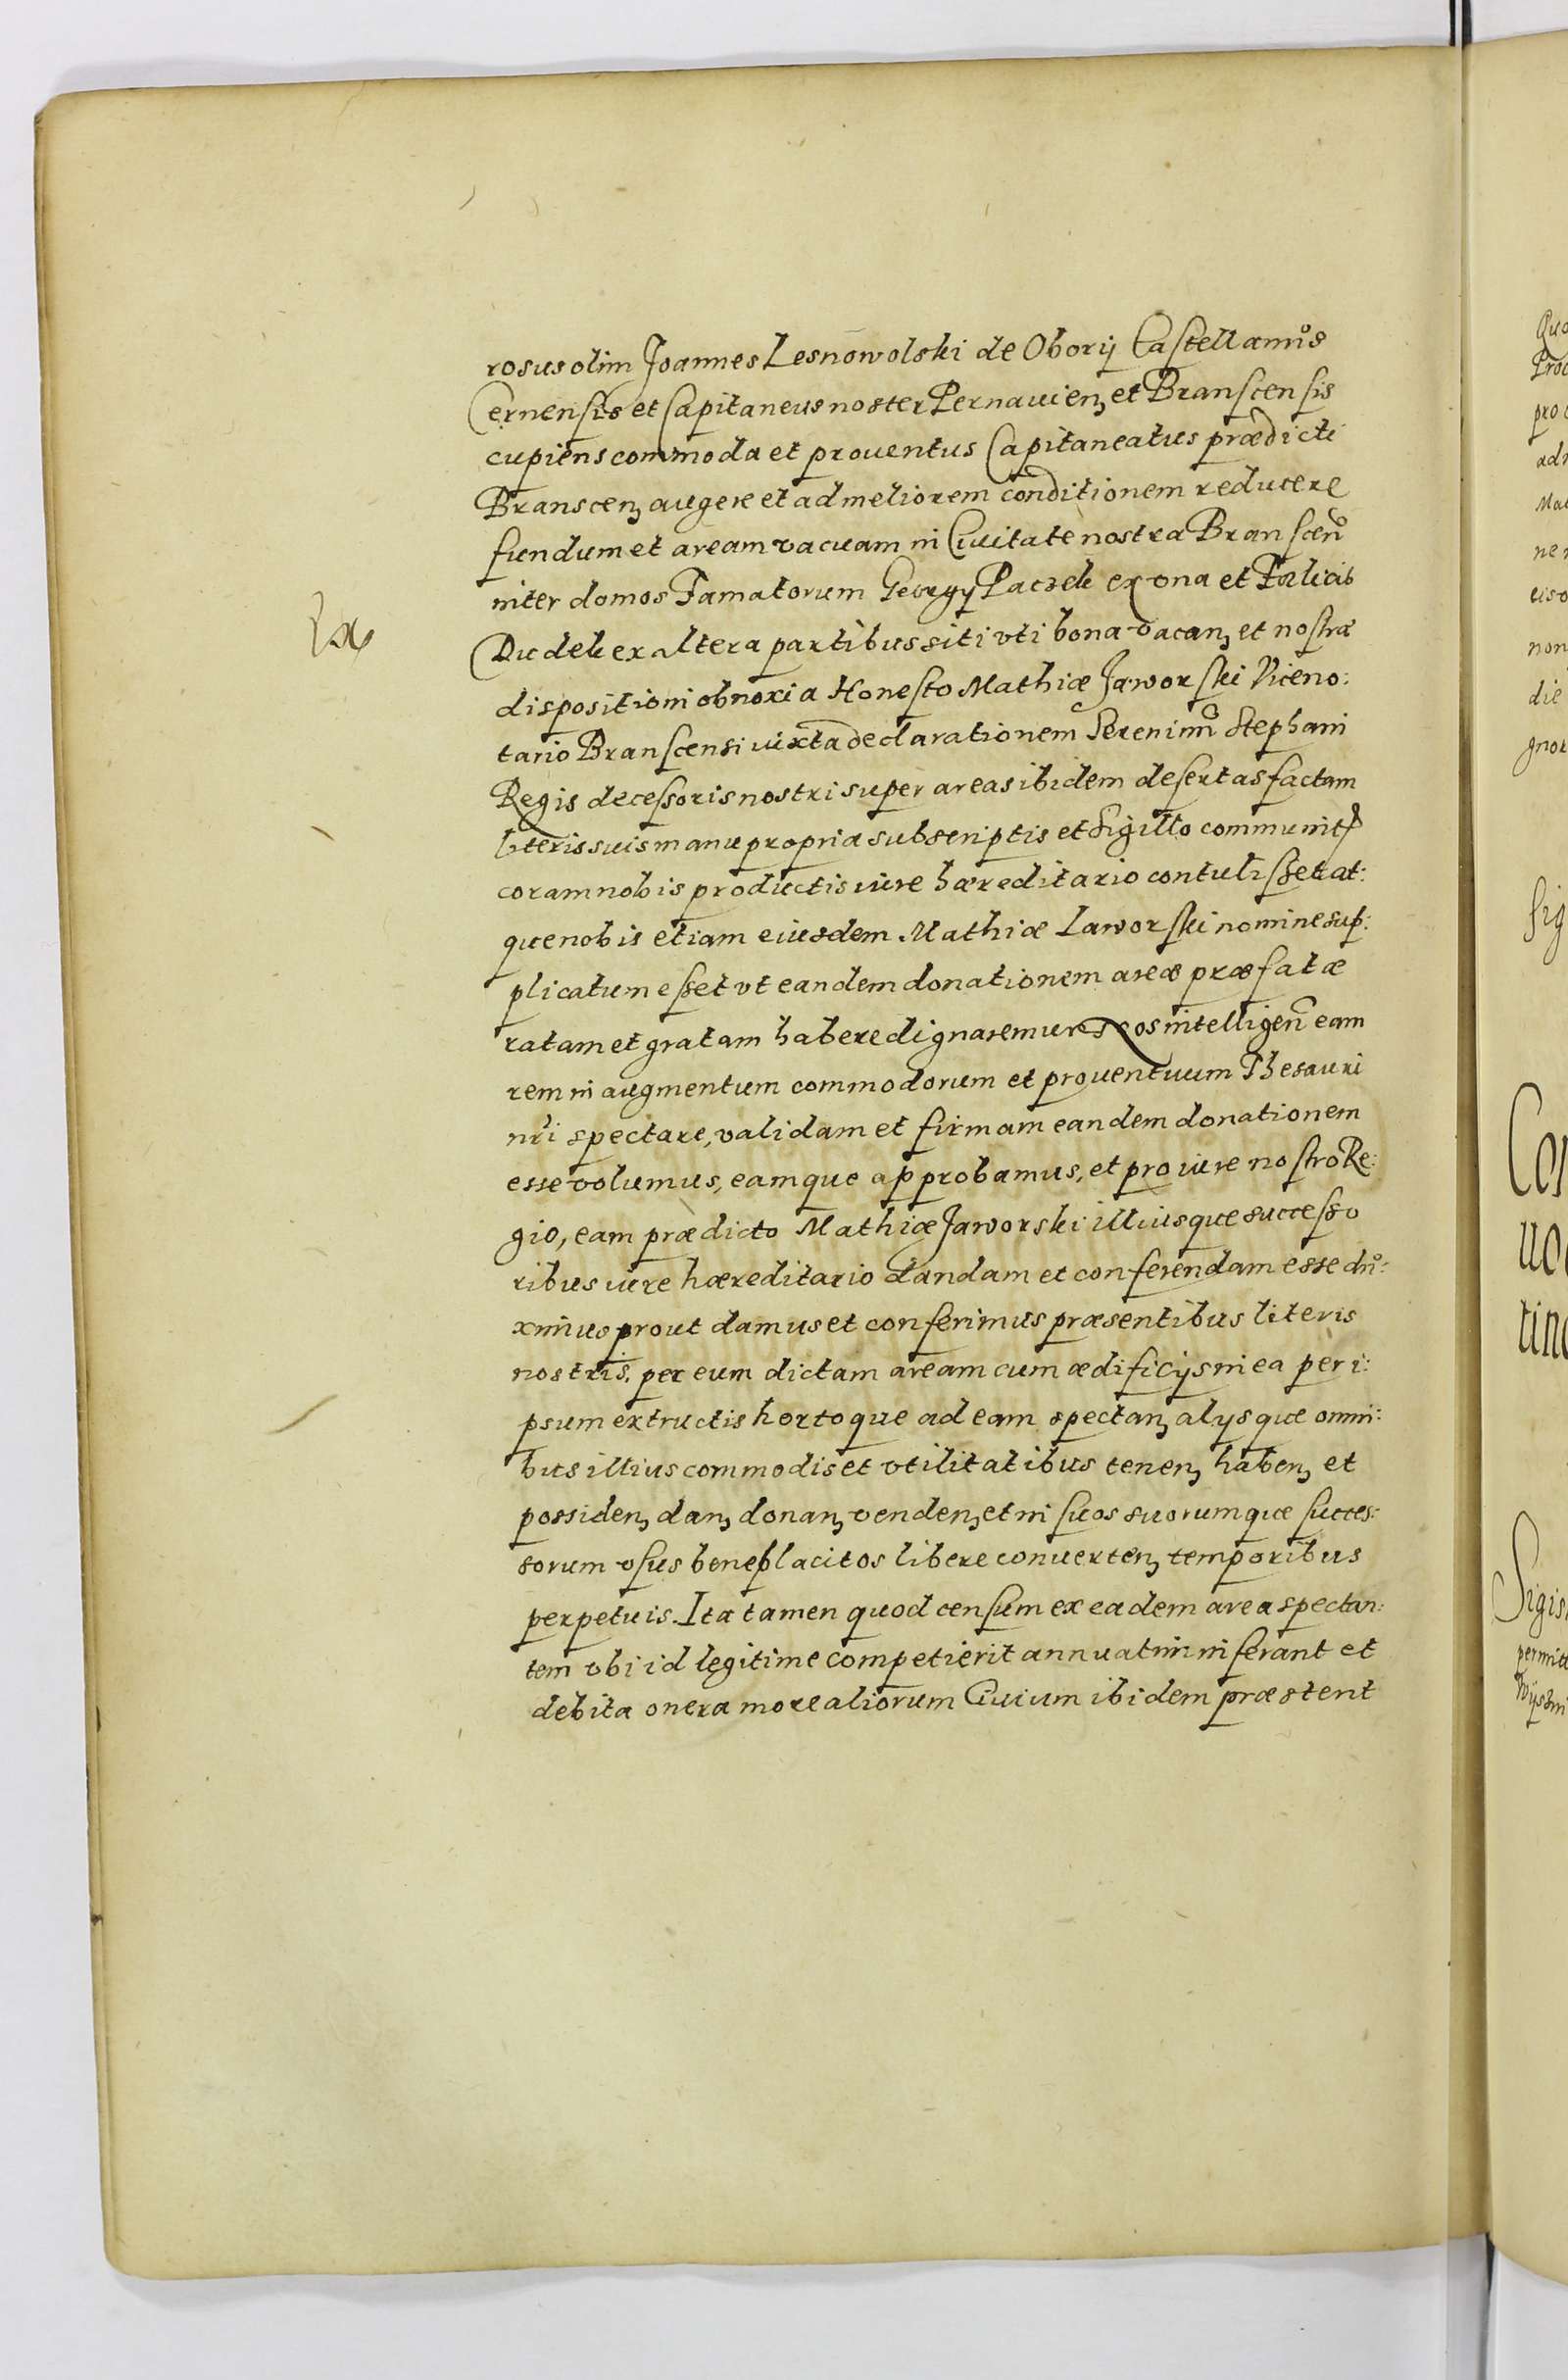 rosus olim Joannes Lesnowolski de Oborÿ Castellanus
Cernensis et Capitaneus noster Pernauien, et Branscensis
cupiens commoda et prouentus Capitaneatus prædicti
Branscen, augere et ad meliorem conditionem reducere
fundum et aream vacuam in Ciuitate nostra Branscen
inter domos Famatorum Georgÿ Paczek ex vna et Fælicis
Dudek ex altera partibus siti vti bona vacan, et nostræ
dispositioni obnoxia Honesto Mathiæ Jaworski Viceno:
tario Branscensi iuxta declarationem Serenimi Stephani
Regis decessoris nostri super areas ibidem desertas factam
literis suis manu propria subscriptis et Sigillo communit
coram nobis productis iure hæreditario contulisset at:
que nobis etiam eiusdem Mathiæ Iaworski nomine sup:
plicatum esset vt eandem donationem areæ præfatæ
ratam et gratam habere dignaremur Nos intelligen eam
rem in augmentum commodorum et prouentuum Thesauri
nri spectare, validam et firmam eandem donationem
esse volumus, eamque approbamus, et pro iure nostro Re:
gio, eam prædicto Mathiæ Jaworski illiusque successo
ribus iure hæreditario dandam et conferendam esse du:
ximus prout damus et conferimus præsentibus literis
nostris, per eum dictam aream cum ædificÿs in ea per i:
psum extructis hortoque ad eam spectan, alÿsque omni:
bus illius commodis et vtilitatibus tenen, haben, et
possiden, dan, donan, venden, et in suos suorumque succes:
sorum vsus beneplacitos libere conuerten, temporibus
perpetuis. Ita tamen quod censum ex eadem area spectan:
tem vbi id legitime competierit annuatim inferant et
debita onera more aliorum Ciuium ibidem præstent